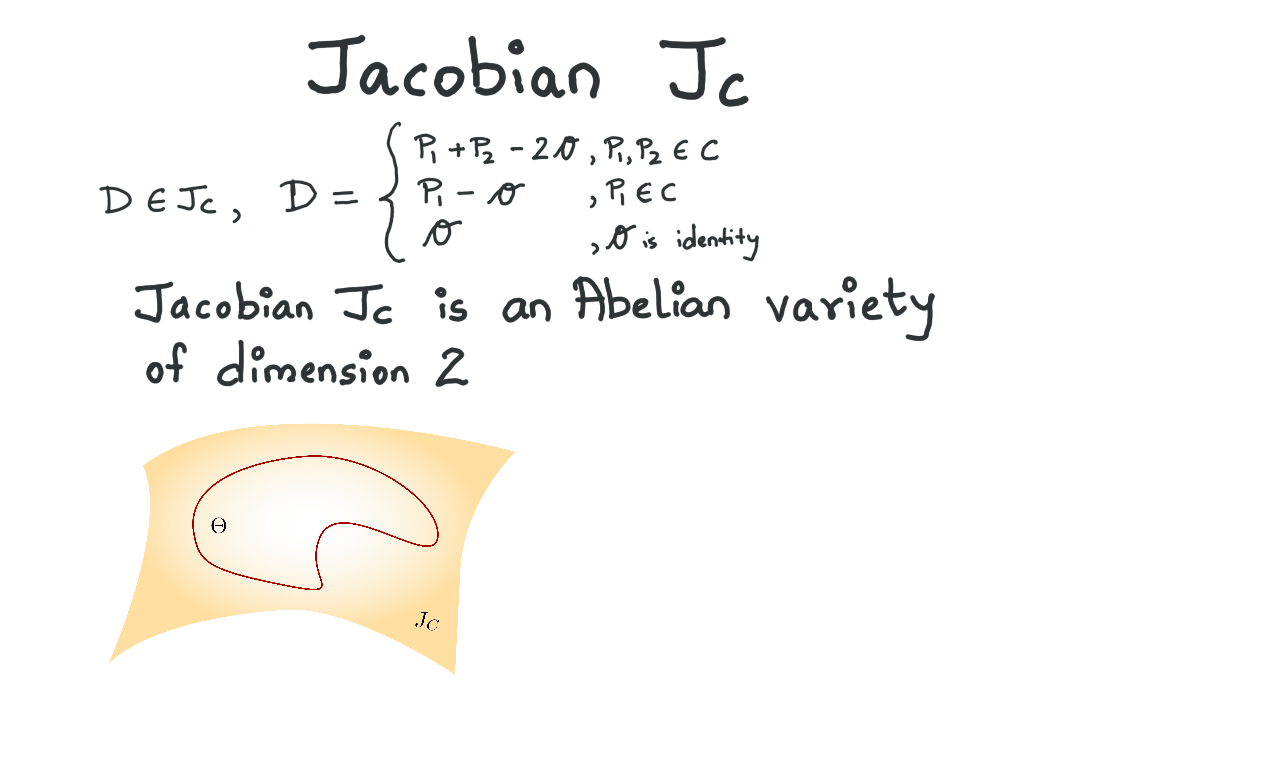 Jacobian J_C
P₁ + P₂ - 2𝒪 , P₁, P₂ ∈ C
D ∈ J_C , D = { P₁ - 𝒪 , P₁ ∈ C
𝒪 , 𝒪 is identity
Jacobian J_C is an Abelian variety
of dimension 2
Θ
J_C